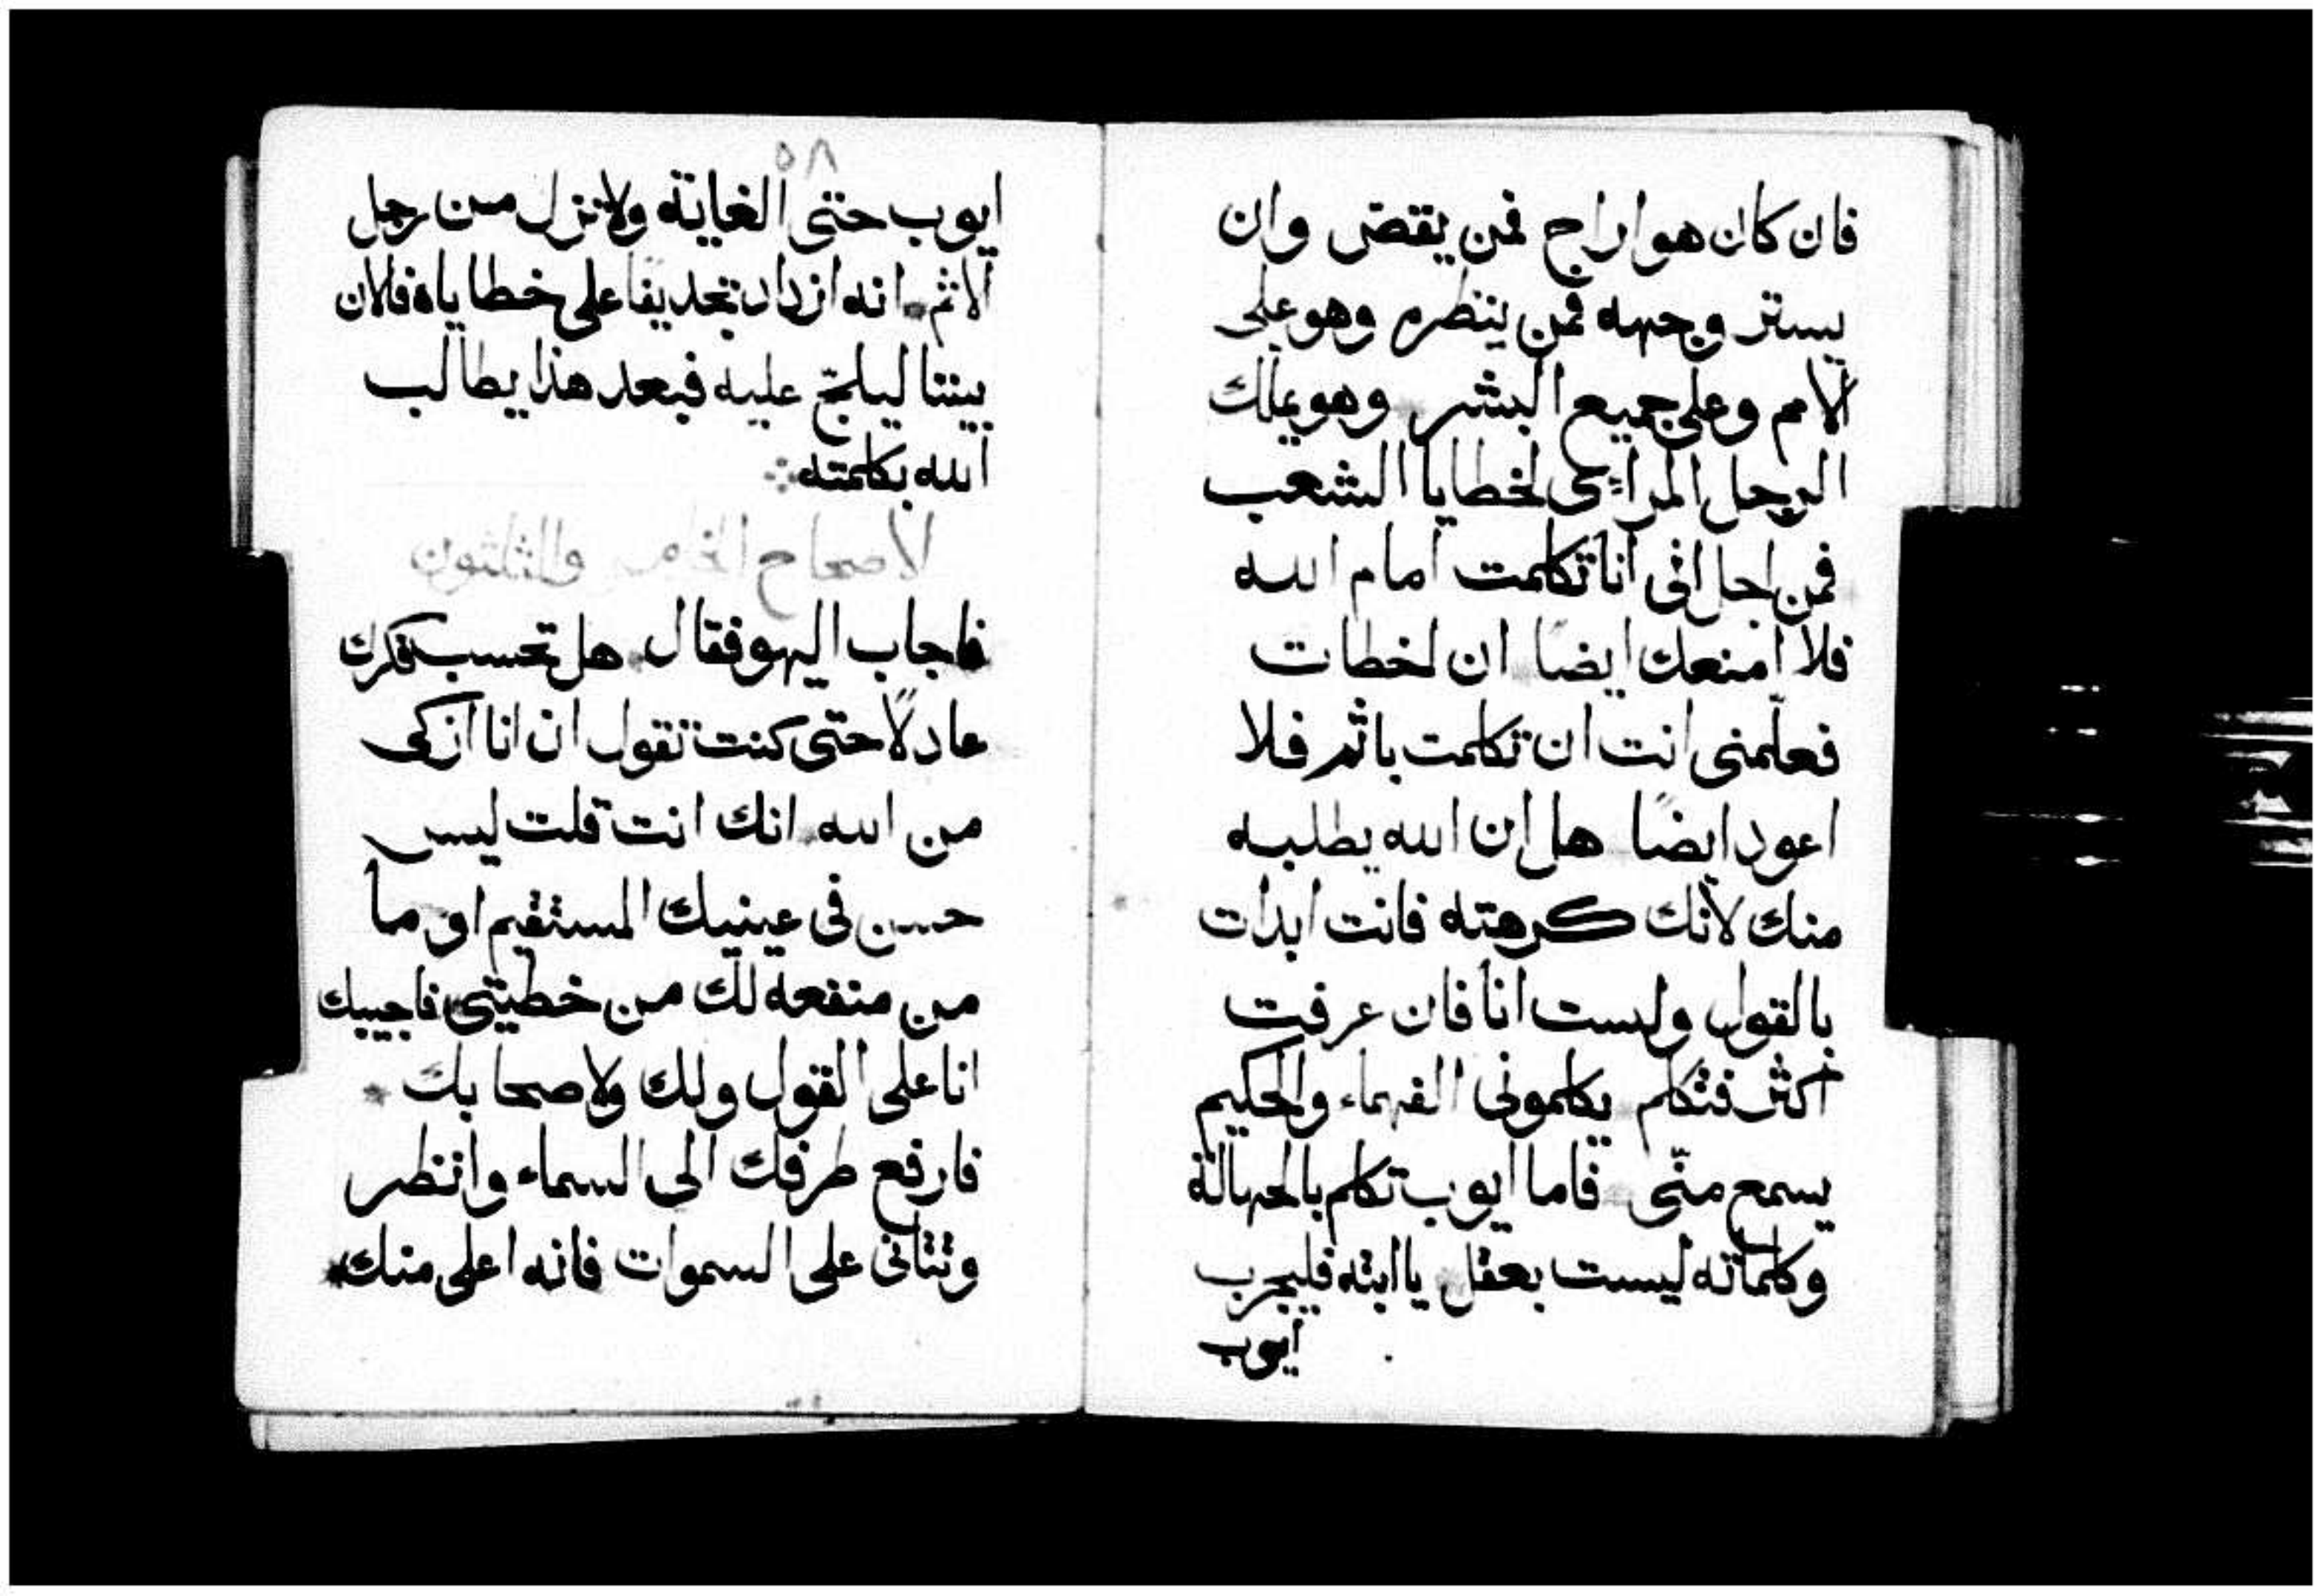 فان كان هو اراح فمن يقضى وان
يستر وجهه فمن ينظره وهو على
الامم وعلى جميع البشر وهو يملك
الرجل المراءى لخطايا الشعب
فمن اجل انى انا تكلمت امام الله
فلا امنعك ايضًا ان لخطات
فعلّمنى انت ان تكلمت باثم فلا
اعود ايضًا هل ان الله يطلبه
منك لانك كرهته فانت ابدات
بالقول ولست انا فان عرفت
اكثر فتكلم يكلمونى الفهماء والحكيم
يسمع منّى فاما ايوب تكلم بالجهالة
وكلماته ليست بعقل يا ابته فليجرب
ايوب
٥٨
ايوب حتى الغاية ولا تزل من رجل
الاثم انه ازداد تجديفا على خطاياه فالان
بيننا ليلجّ عليه فبعد هذا يطالب
الله بكلمته
الاصحاح الخامس والثلثون
فاجاب اليهو فقال هل تحسب فكرك
عادلًا حتى كنت تقول ان انا ازكى
من الله انك انت قلت ليس
حسن فى عينيك المستقيم او ما
من منفعه لك من خطيتى فاجيبك
انا على القول ولك ولاصحابك
فارفع طرفك الى السماء وانظر
وتتانى على السموات فانه اعلى منك